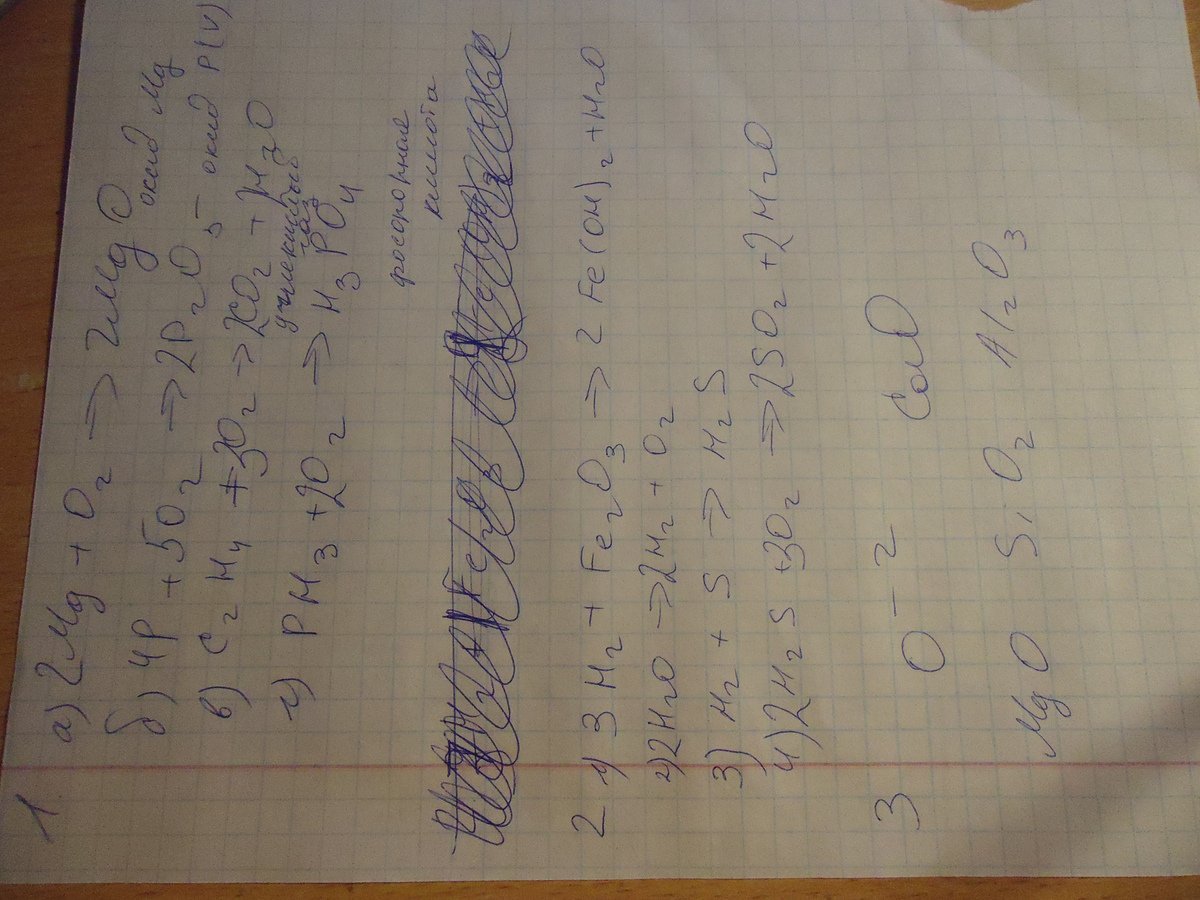 1 а) 2Mg + O₂ → 2MgO оксид Mg
б) 4P + 5O₂ → 2P₂O₅ – оксид P(V)
в) C₂H₄ + 3O₂ → 2CO₂ + H₂O
углекислый газ
г) PH₃ + 2O₂ → H₃PO₄
фосфорная
кислота
2 1) 3H₂ + Fe₂O₃ → 2Fe(OH)₂ + H₂O
2) 2H₂O → 2H₂ + O₂
3) H₂ + S → H₂S
4) 2H₂S + 3O₂ → 2SO₂ + 2H₂O
3 O⁻² CaO
MgO SiO₂ Al₂O₃